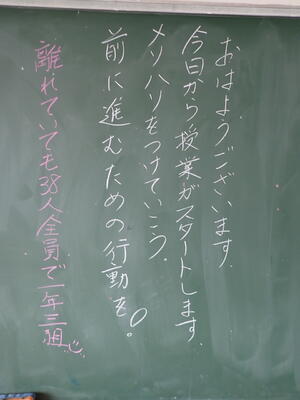 おはようございます.
今日から授業がスタートします.
メリハリをつけていこう.
前に進むための行動を!
離れていても38人全員で一年三組